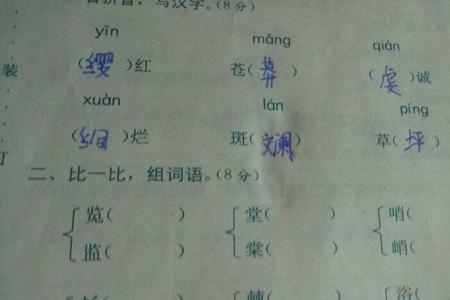 拼音,写汉字。(8分)
yīn mǎng qián
装 (缨)红 苍(莽) (虔)诚
xuàn lán píng
(绚)烂 斑(斓) 草(坪)
二、比一比,组词语。(8分)
览( ) 堂( ) 哨(
监( ) 棠( ) 峭(
浴(